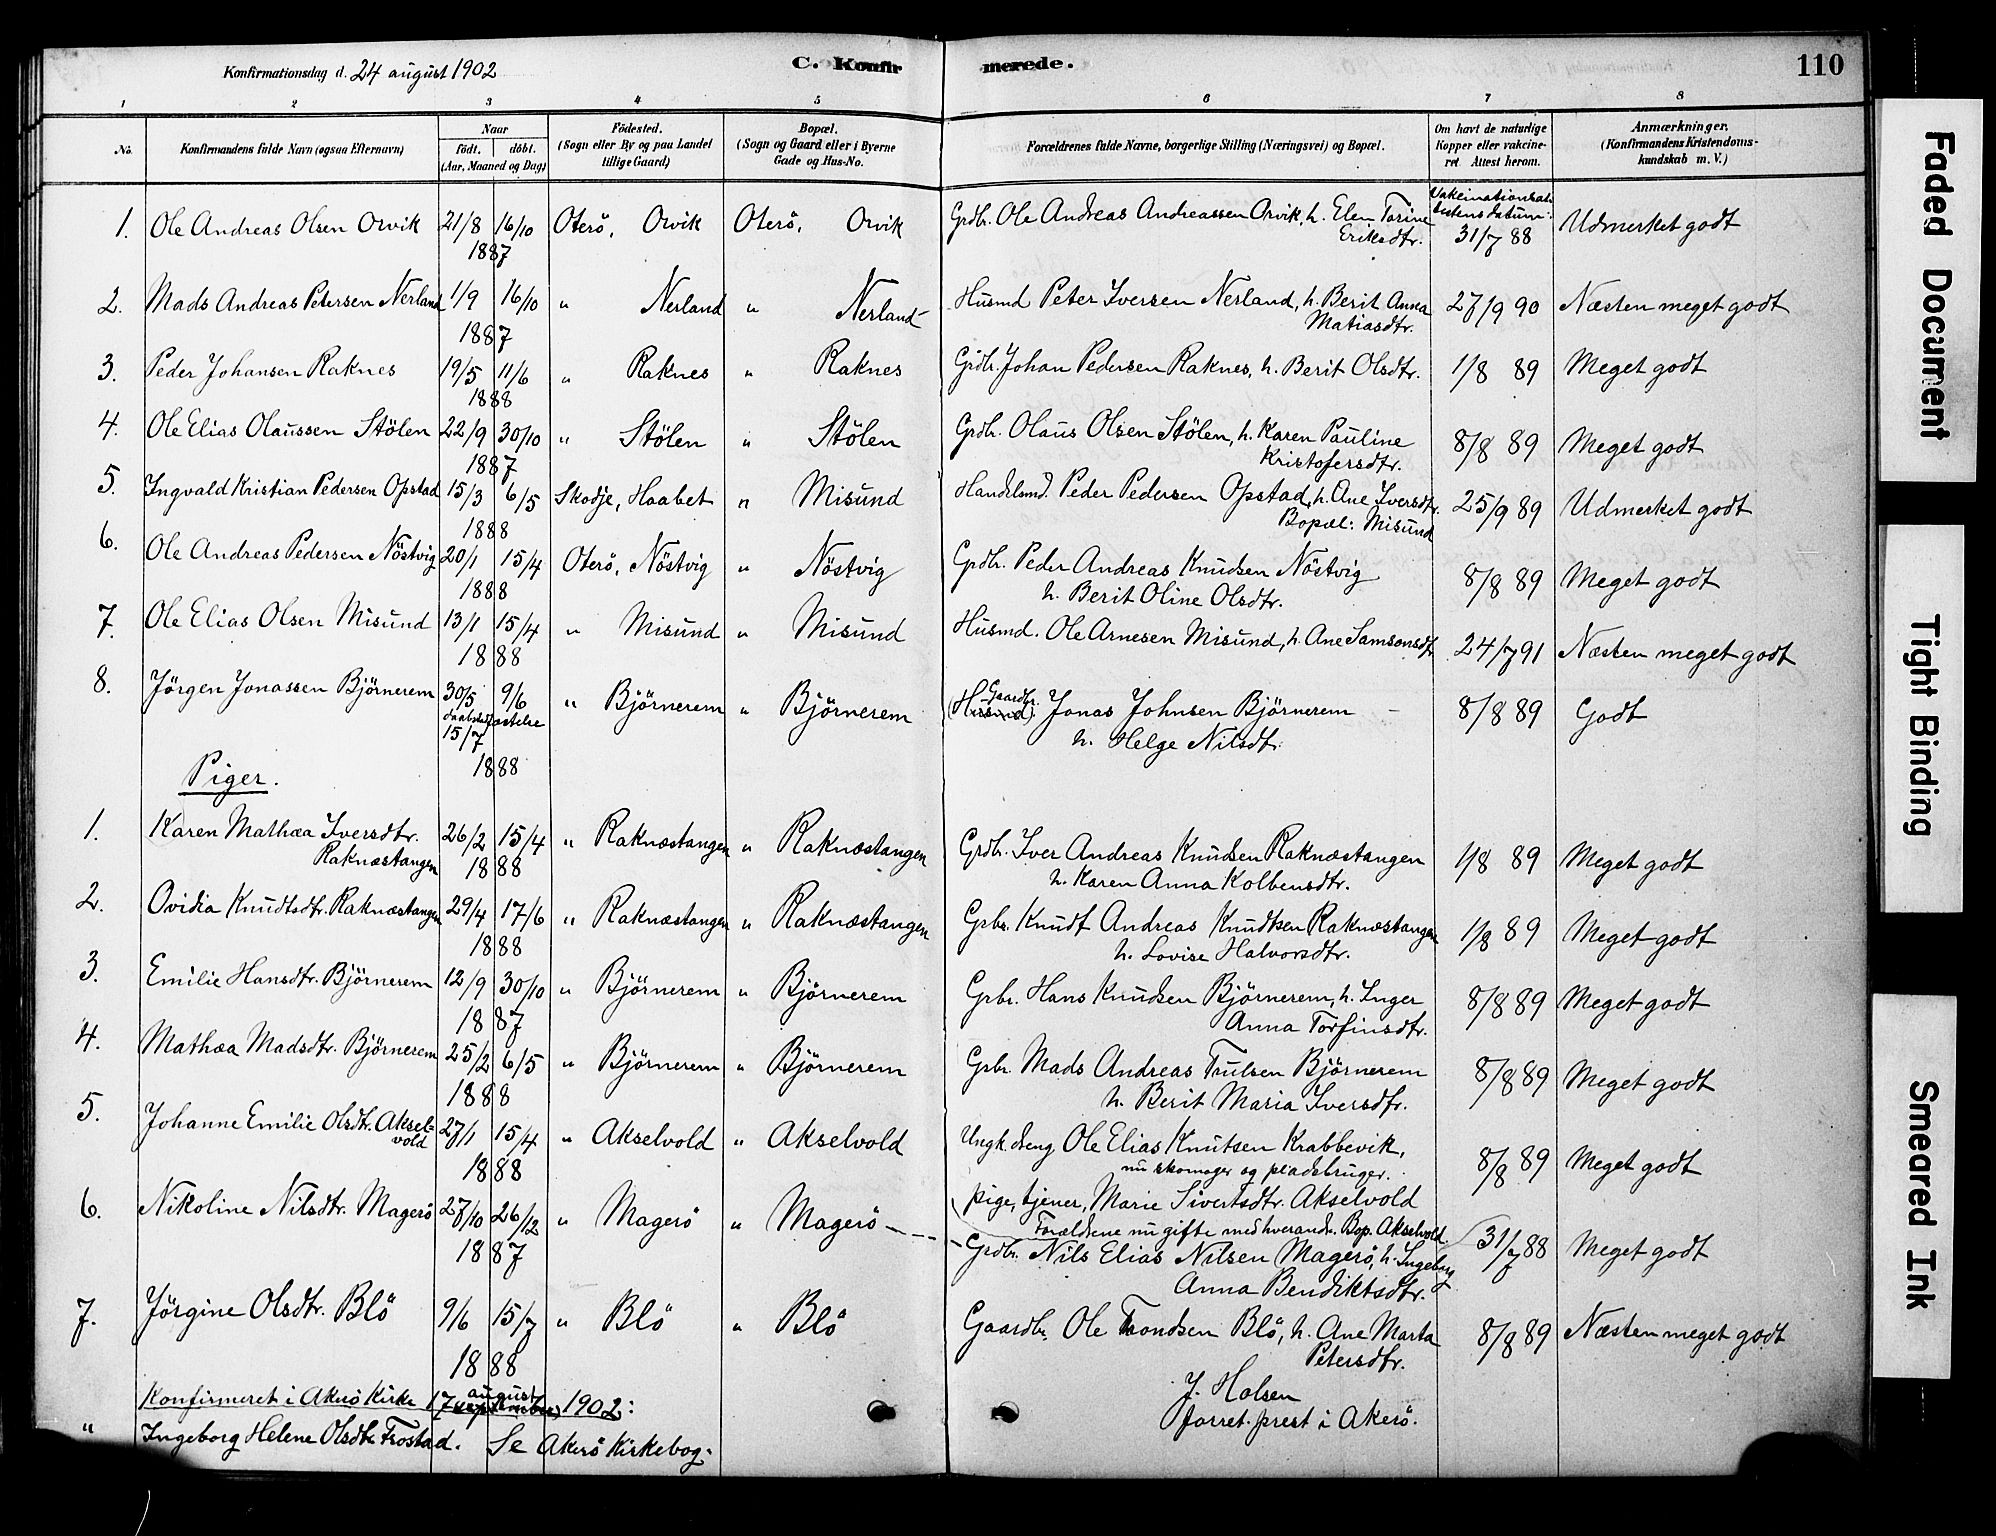 Konfirmationsdag d. 24 august 1902
C. Konfirmerede.
110
1 2 3 4 5 6 7 8
No. Konfirmandens fulde Navn (ogsaa Efternavn) Naar født. døbt. (Aar, Maaned og Dag) Fødested. (Sogn eller By og paa Landet tillige Gaard) Bopæl. (Sogn og Gaard eller i Byerne Gade og Hus-No. Forældrenes fulde Navne, borgerlige Stilling (Næringsvei) og Bopæl. Om havt de naturlige Kopper eller vakcineret Attest herom. Anmærkninger. (Konfirmandens Kristendomskundskab m. V.)
1. Ole Andreas Olsen Orvik 21/8 16/10 1887 Oterö, Orvik Oterö, Orvik Grdbr. Ole Andreas Andreassen Orvik, h. Elen Torine Eriksdtr. Vakcinationsattestens datum: 31/7 88 Udmerket godt
2. Mads Andreas Petersen Nerland 1/9 16/10 1887 " Nerland " Nerland Husmd Peter Iversen Nerland, h. Berit Anna Matiasdtr. 27/9 90 Næsten meget godt
3. Peder Johansen Raknes 19/5 11/6 1888 " Raknes " Raknes Grdbr. Johan Pedersen Raknes, h. Berit Olsdtr. 1/8 89 Meget godt
4. Ole Elias Olaussen Stölen 22/9 30/10 1887 " Stölen " Stölen Grdbr. Olaus Olsen Stölen, h. Karen Pauline Kristofersdtr. 8/8 89 Meget godt
5. Ingvald Kristian Pedersen Opstad 15/3 6/5 1888 Skodje, Haabet " Misund Handelsmd. Peder Pedersen Opstad, h. Ane Iversdtr. Bopæl: Misund 25/9 89 Udmerket godt
6. Ole Andreas Pedersen Nöstvig 20/1 15/4 1888 Oterö, Nöstvig " Nöstvig Grdbr. Peder Andreas Knudsen Nöstvig h. Berit Oline Olsdtr. 8/8 89 Meget godt
7. Ole Elias Olsen Misund 13/1 15/4 1888 " Misund " Misund Husmd. Ole Arnesen Misund, h. Ane Samsonsdtr 24/7 91 Næsten meget godt
8. Jörgen Jonassen Björnerem 30/5 9/6 daabstadfæstelse 15/7 1888 " Björnerem " Björnerem (Husmd) Gaardbr. Jonas Johnsen Björnerem h. Helge Nilsdtr. 8/8 89 Godt
Piger.
1. Karen Mathæa Iversdtr. Raknæstangen 26/2 15/4 1888 " Raknæstangen " Raknæstangen Grdb. Iver Andreas Knudsen Raknæstangen h. Karen Anna Kolbensdtr. 1/8 89 Meget godt
2. Ovidia Knudtsdtr. Raknæstangen 29/4 17/6 1888 " Raknæstangen " Raknæstangen Grbr. Knudt Andreas Knudtsen Raknæstangen h. Lovise Halvorsdtr. 1/8 89 Meget godt
3. Emilie Hansdtr. Björnerem 12/9 30/10 1887 " Björnerem " Björnerem Grbr. Hans Knudsen Björnerem, h. Inger Anna Torfinsdtr. 8/8 89 Meget godt
4. Mathæa Madsdtr. Björnerem 25/2 6/5 1888 " Björnerem " Björnerem Grbr. Mads Andreas Trulsen Björnerem h. Berit Maria Iversdtr. 8/8 89 Meget godt
5. Johanne Emilie Olsdtr. Akselvold 27/1 15/4 1888 " Akselvold " Akselvold Ungk. dreng Ole Elias Knutsen Krabbevik, nu skomager og pladsbruger. pige, tjener, Marie Sivertsdtr. Akselvold Forældrene nu gifte med hverandr. Bop. Akselvold. 8/8 89 Meget godt
6. Nikoline Nilsdtr. Magerö 27/10 26/12 1887 " Magerö " Magerö Grdbr. Nils Elias Nilsen Magerö, h. Ingeborg Anna Bendiktsdtr. 31/7 88 Meget godt
7. Jörgine Olsdtr. Blö 9/6 15/7 1888 " Blö " Blö Gaardbr. Ole Trondsen Blö, h. Ane Marta Petersdtr. 8/8 89 Næsten meget godt
Konfirmeret i Akerö Kirke 17 september august 1902:
J. Holsen
forret. prest i Akerö.
" Ingeborg Helene Olsdtr Frostad. Se Akerö Kirkebog.
Faded Document
Tight Binding
Smeared Ink